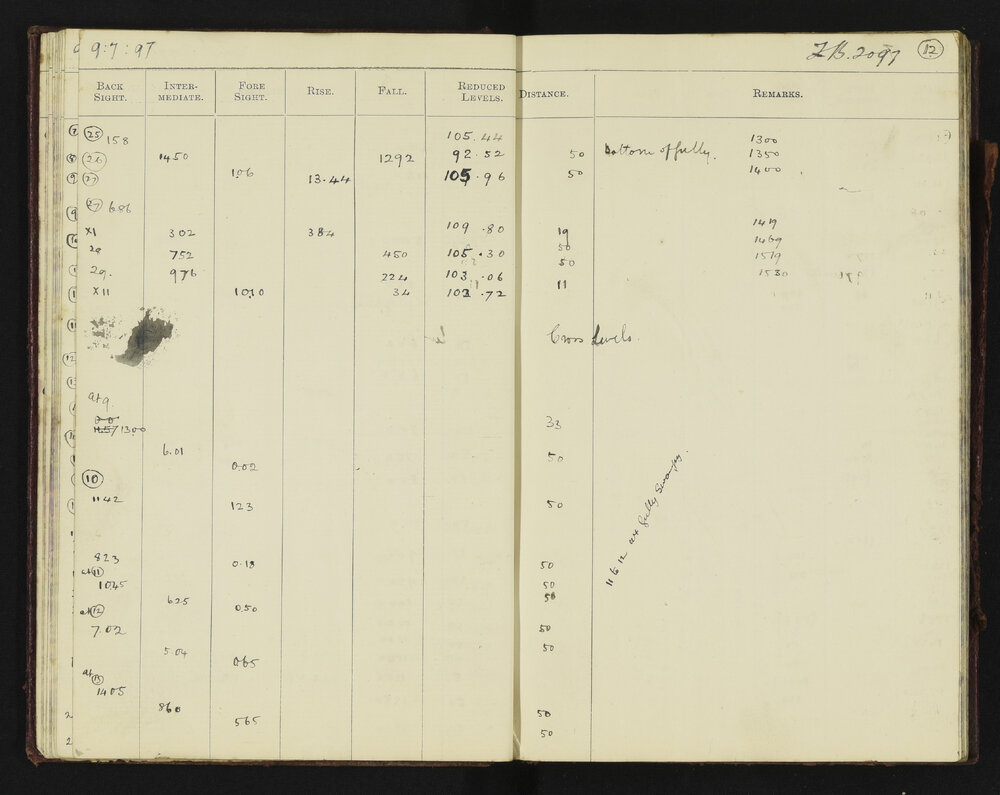 9:7:97
F.B. 2097 12
BACK SIGHT. INTER-MEDIATE. FORE SIGHT. RISE. FALL. REDUCED LEVELS. DISTANCE. REMARKS.
25 158 105.44 1300
26 1450 1292 92.52 50 Bottom of Gully. 1350
27 106 13.44 105.96 50 1400
27 686
XI 302 384 109.80 19 1419
28 752 450 105.30 50 1469
29. 976 224 103.06 50 1519
XII 1010 34 102.72 11 1530
Cross Levels.
at 9.
1300 33
6.01
0.02 50
10
1142 123 50
823 0.18 50
at 11
1045 50
625 50
at 12 0.50
7.02 50
5.04 50
065
at 13
1405
860 50
565
50
11 to 12 ax Gully Swampy.